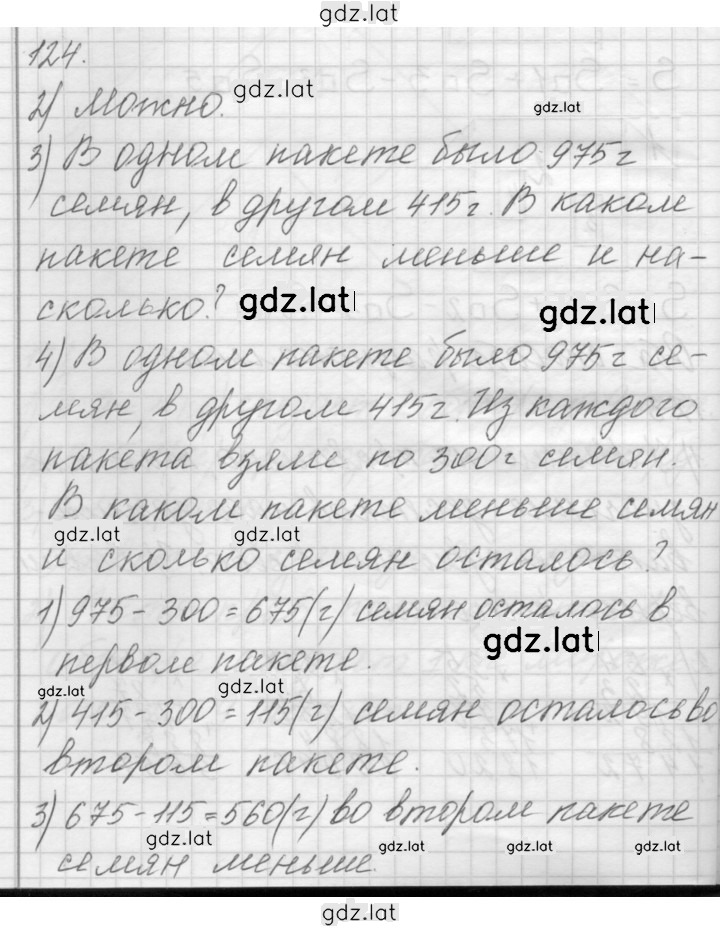 gdz.lat
124.
2) Можно. gdz.lat
gdz.lat
3) В одном пакете было 975 г
семян, в другом 415 г. В каком
пакете семян меньше и на-
сколько? gdz.lat
gdz.lat
4) В одном пакете было 975 г се-
мян, в другом 415 г. Из каждого
пакета взяли по 300 г семян.
В каком пакете меньше семян
gdz.lat gdz.lat
и сколько семян осталось?
1) 975 - 300 = 675 (г) семян осталось в
gdz.lat
первом пакете.
gdz.lat gdz.lat
2) 415 - 300 = 115 (г) семян осталось во
втором пакете.
3) 675 - 115 = 560 (г) во втором пакете
gdz.lat gdz.lat gdz.lat
семян меньше.
gdz.lat